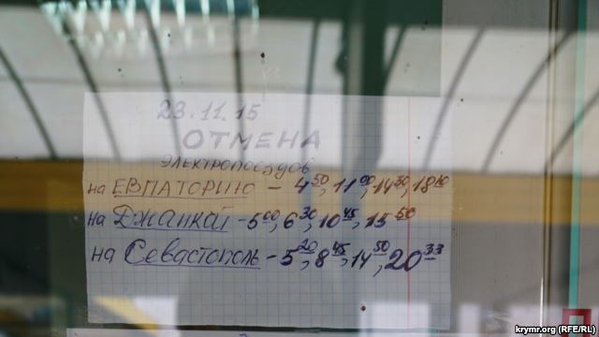 23.11.15
ОТМЕНА
ЭЛЕКТРОПОЕЗДОВ
на ЕВПАТОРИЮ – 4 50, 11 00, 14 30, 18 10
на Джанкой – 5 00, 6 30, 10 45, 15 50
на Севастополь – 5 20, 8 45, 14 50, 20 33
krymr.org (RFE/RL)